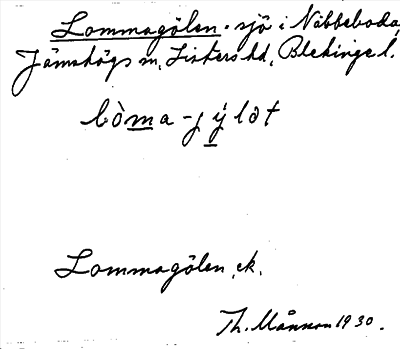 Lommagölen. sjö i Näbbeboda,
Jämshögs sn, Listers hd, Blekinge l.
lòma-jýlət
Lommagölen, ek.
Th. Månsson 1930.